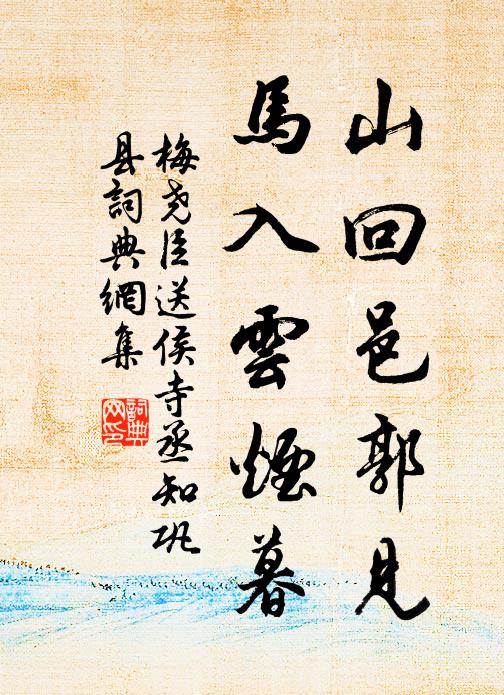 山回邑郭見
馬入雲煙暮
梅尧臣送侯寺丞知巩
县詞典網集
詞典
网印